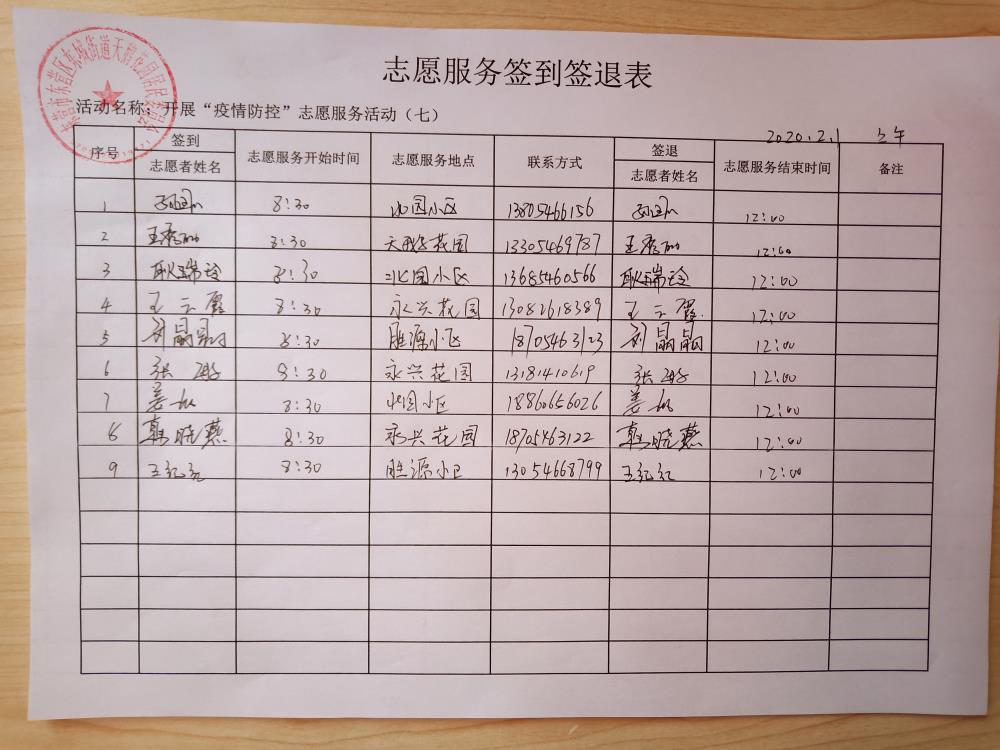 志愿服务签到签退表
活动名称：开展“疫情防控”志愿服务活动（七）
2020.2.1 上午
序号 签到 志愿服务开始时间 志愿服务地点 联系方式 签退 志愿服务结束时间 备注
志愿者姓名 志愿者姓名
1 8:30 北园小区 13805466156 12:00
2 8:30 天鹅花园 13305469787 12:00
3 耿瑞玲 8:30 北园小区 13685460566 耿瑞玲 12:00
4 王云霞 8:30 永兴花园 13082618389 王云霞 12:00
5 刘晶晶 8:30 胜源小区 18705463123 刘晶晶 12:00
6 张 8:30 永兴花园 13181410619 张 12:00
7 姜 8:30 北园小区 18860656026 姜 12:00
8 韩晓燕 8:30 永兴花园 18705463122 韩晓燕 12:00
9 王红红 8:30 胜源小区 13054668799 王红红 12:00